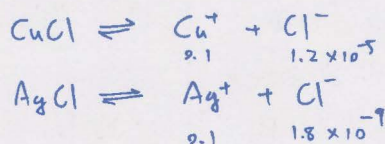 CuCl ⇌ Cu⁺ + Cl⁻
0.1 1.2 × 10⁻⁵
AgCl ⇌ Ag⁺ + Cl⁻
0.1 1.8 × 10⁻⁹